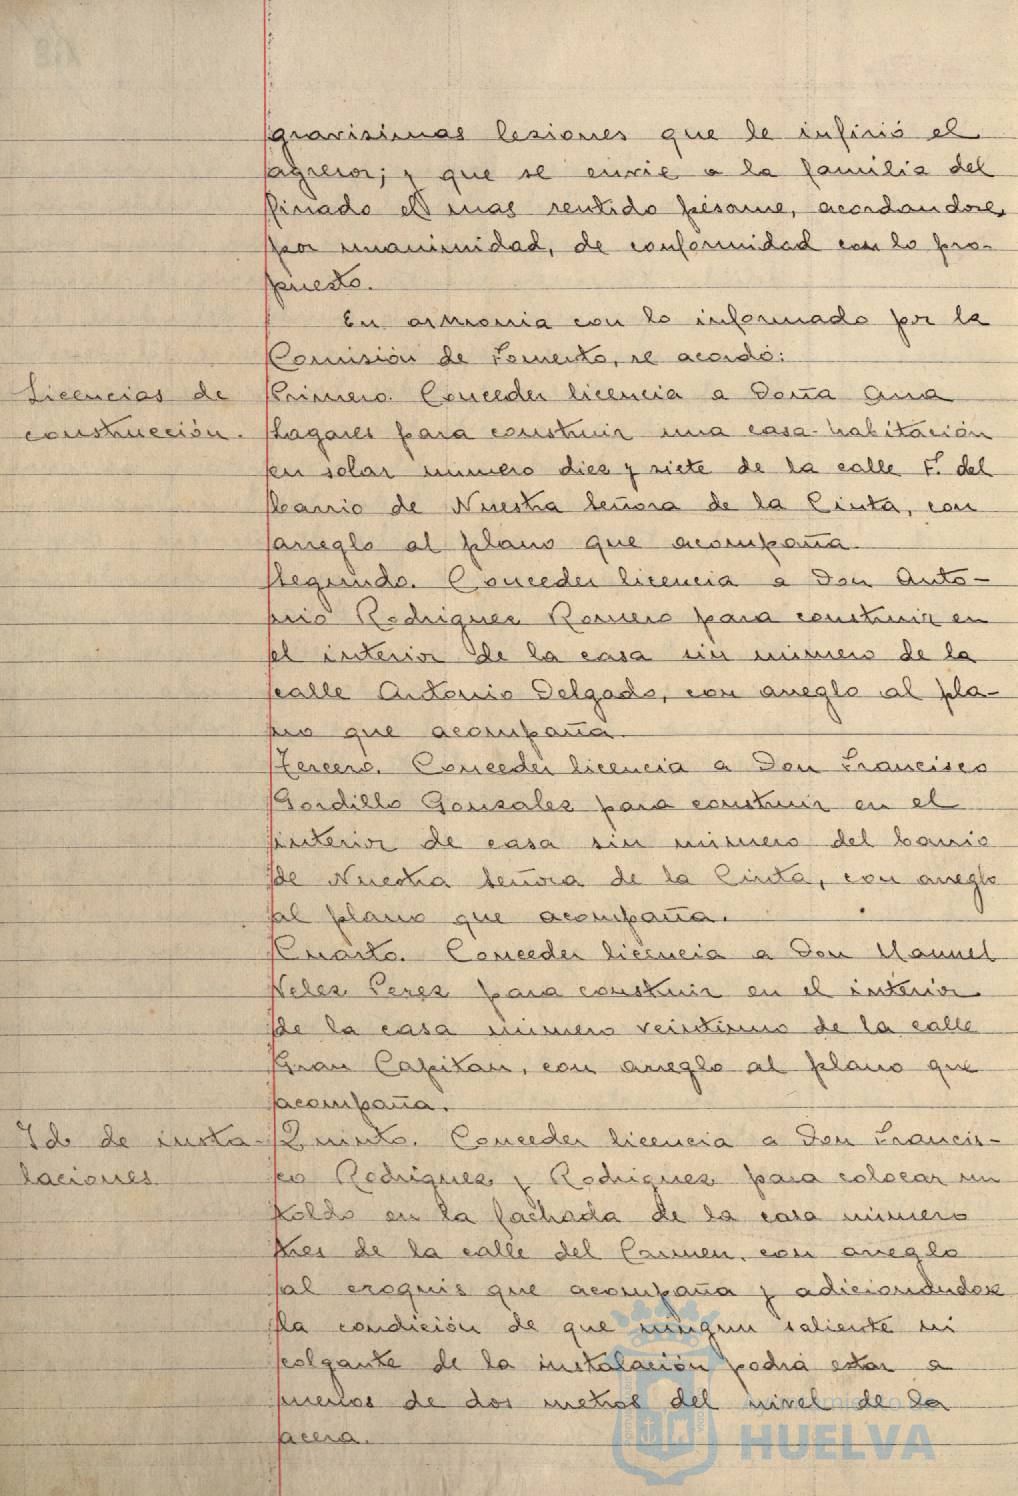 gravisimas lesiones que le infirió el
agresor; y que se envie a la familia del
finado el mas sentido pésame, acordandose,
por unanimidad, de conformidad con lo pro-
puesto.
En armonia con lo informado por la
Comisión de Fomento, se acordó:
Licencias de
construcción.
Primero. Conceder licencia a Doña Ana
Lagares para construir una casa-habitación
en solar numero diez y siete de la calle F. del
barrio de Nuestra Señora de la Cinta, con
arreglo al plano que acompaña.
Segundo. Conceder licencia a Don Anto-
nio Rodriguez Romero para construir en
el interior de la casa sin numero de la
calle Antonio Delgado, con arreglo al pla-
no que acompaña.
Tercero. Conceder licencia a Don Francisco
Gordillo Gonzalez para construir en el
interior de casa sin numero del barrio
de Nuestra Señora de la Cinta, con arreglo
al plano que acompaña.
Cuarto. Conceder licencia a Don Manuel
Velez Perez para construir en el interior
de la casa numero veintiuno de la calle
Gran Capitan, con arreglo al plano que
acompaña.
Id. de insta-
laciones
Quinto. Conceder licencia a Don Francis-
co Rodriguez y Rodriguez para colocar un
toldo en la fachada de la casa numero
tres de la calle del Carmen, con arreglo
al croquis que acompaña y adicionandose
la condición de que ningun saliente ni
colgante de la instalación podrá estar a
menos de dos metros del nivel de la
acera.
Ayuntamiento de
HUELVA